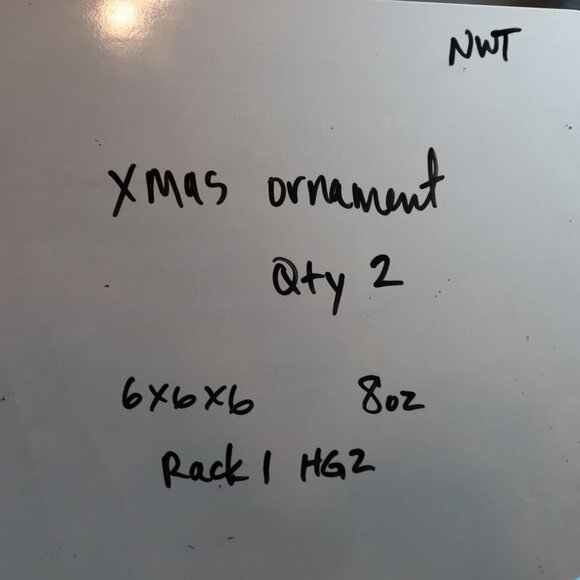 NWT
Xmas ornament
Qty 2
6x6x6 8oz
Rack 1 HG2